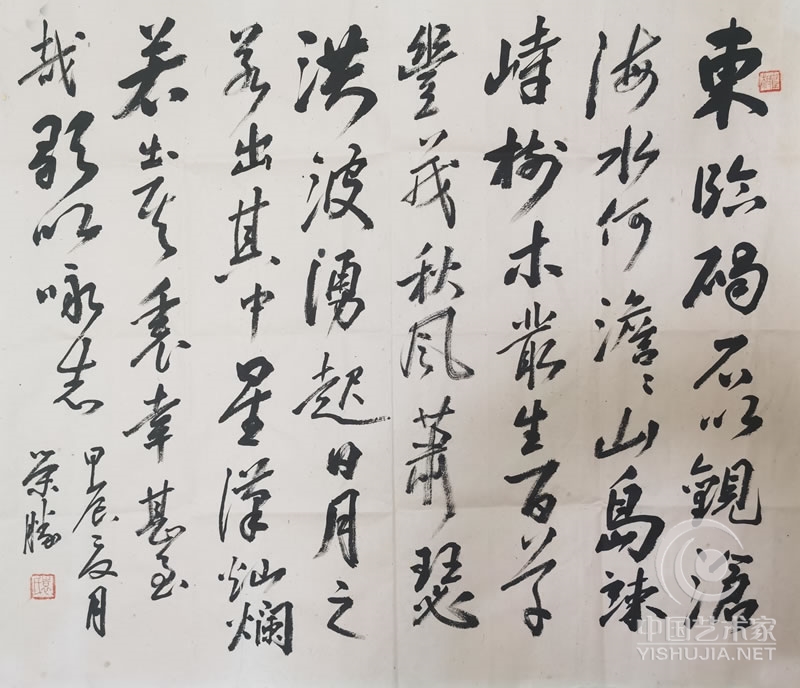 東臨碣石以觀滄
海水何澹々山島竦
峙樹木叢生百草
豐茂秋風蕭瑟
洪波湧起日月之
若出其中星漢灿爛
若出其裏幸甚至
哉歌以咏志
甲辰夏月
荣勝
中国艺术家
YISHUJIA.NET